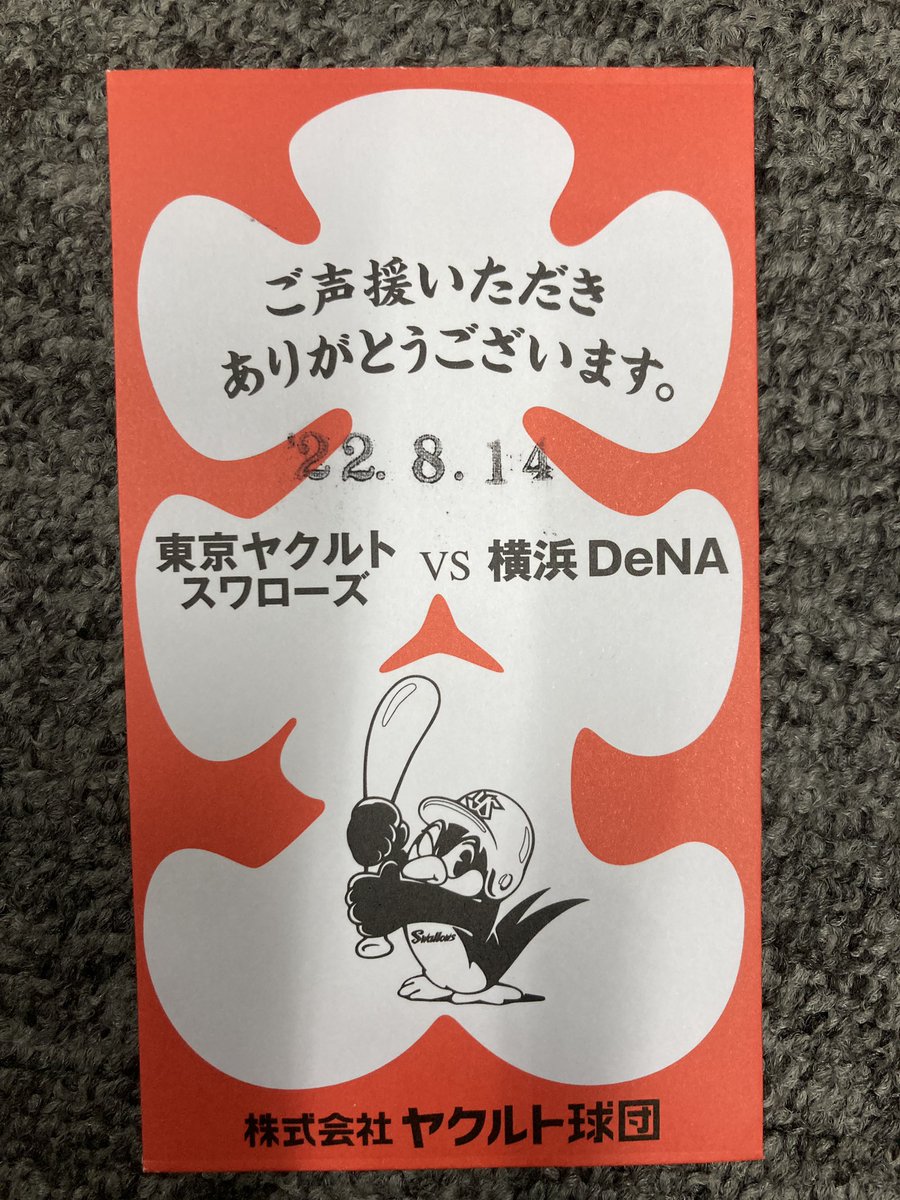 ご声援いただき
ありがとうございます。
'22. 8. 14
東京ヤクルト
スワローズ
VS
横浜DeNA
YS
Swallows
株式会社 ヤクルト球団